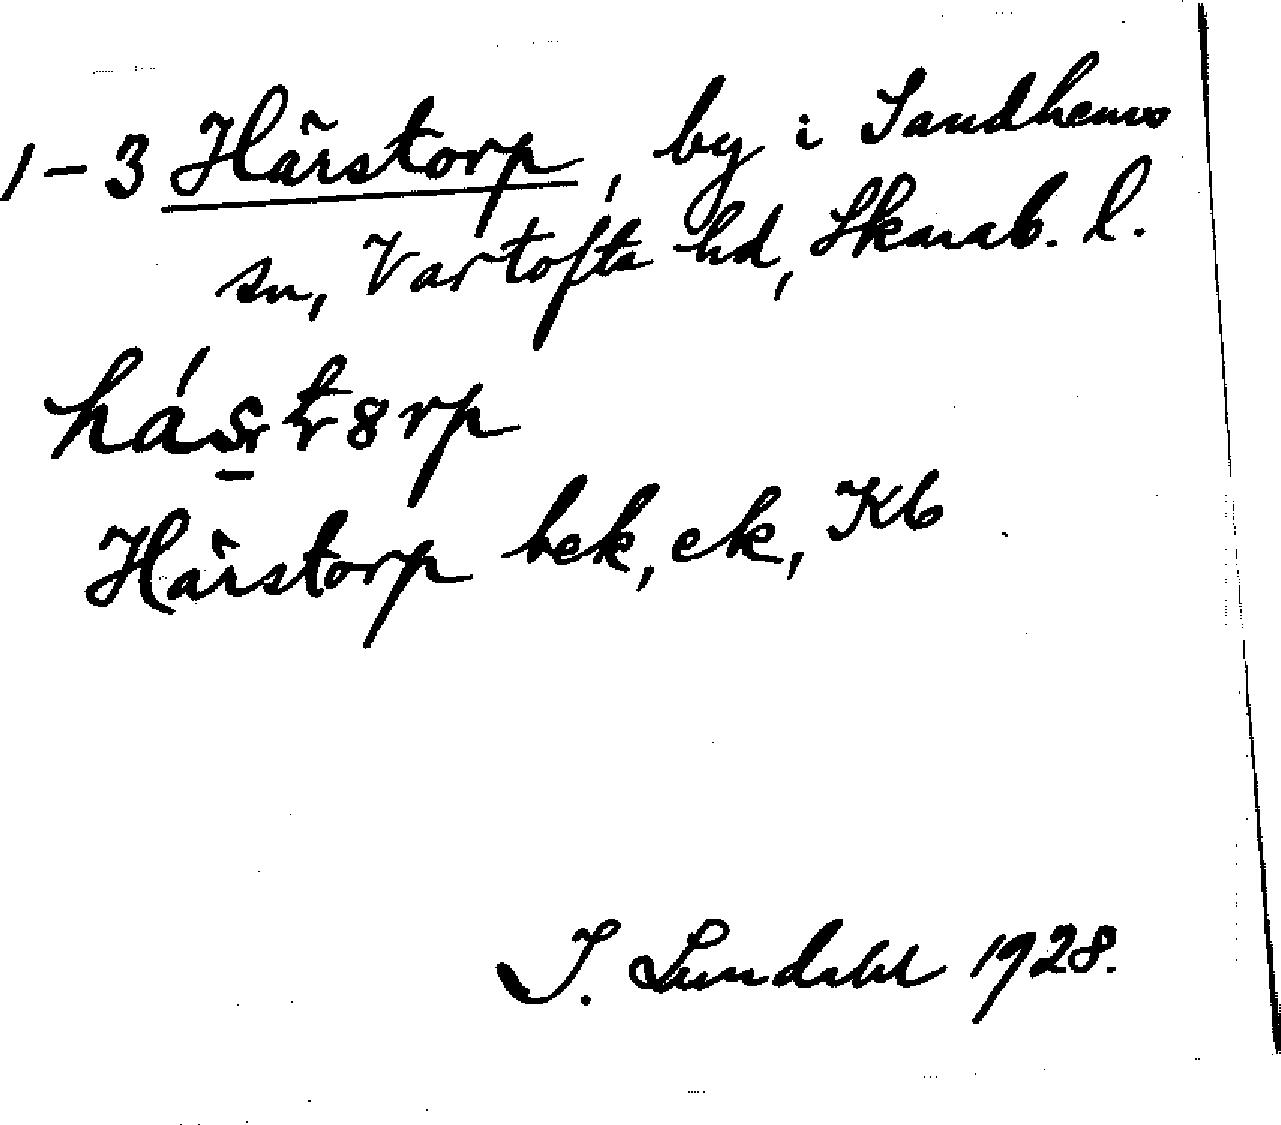 1-3 Härstorp, by i Sandhems
sn, Vartofta hd, Skarab. l.
Härstorp bek, ek, Kb
I. Lundahl 1928.